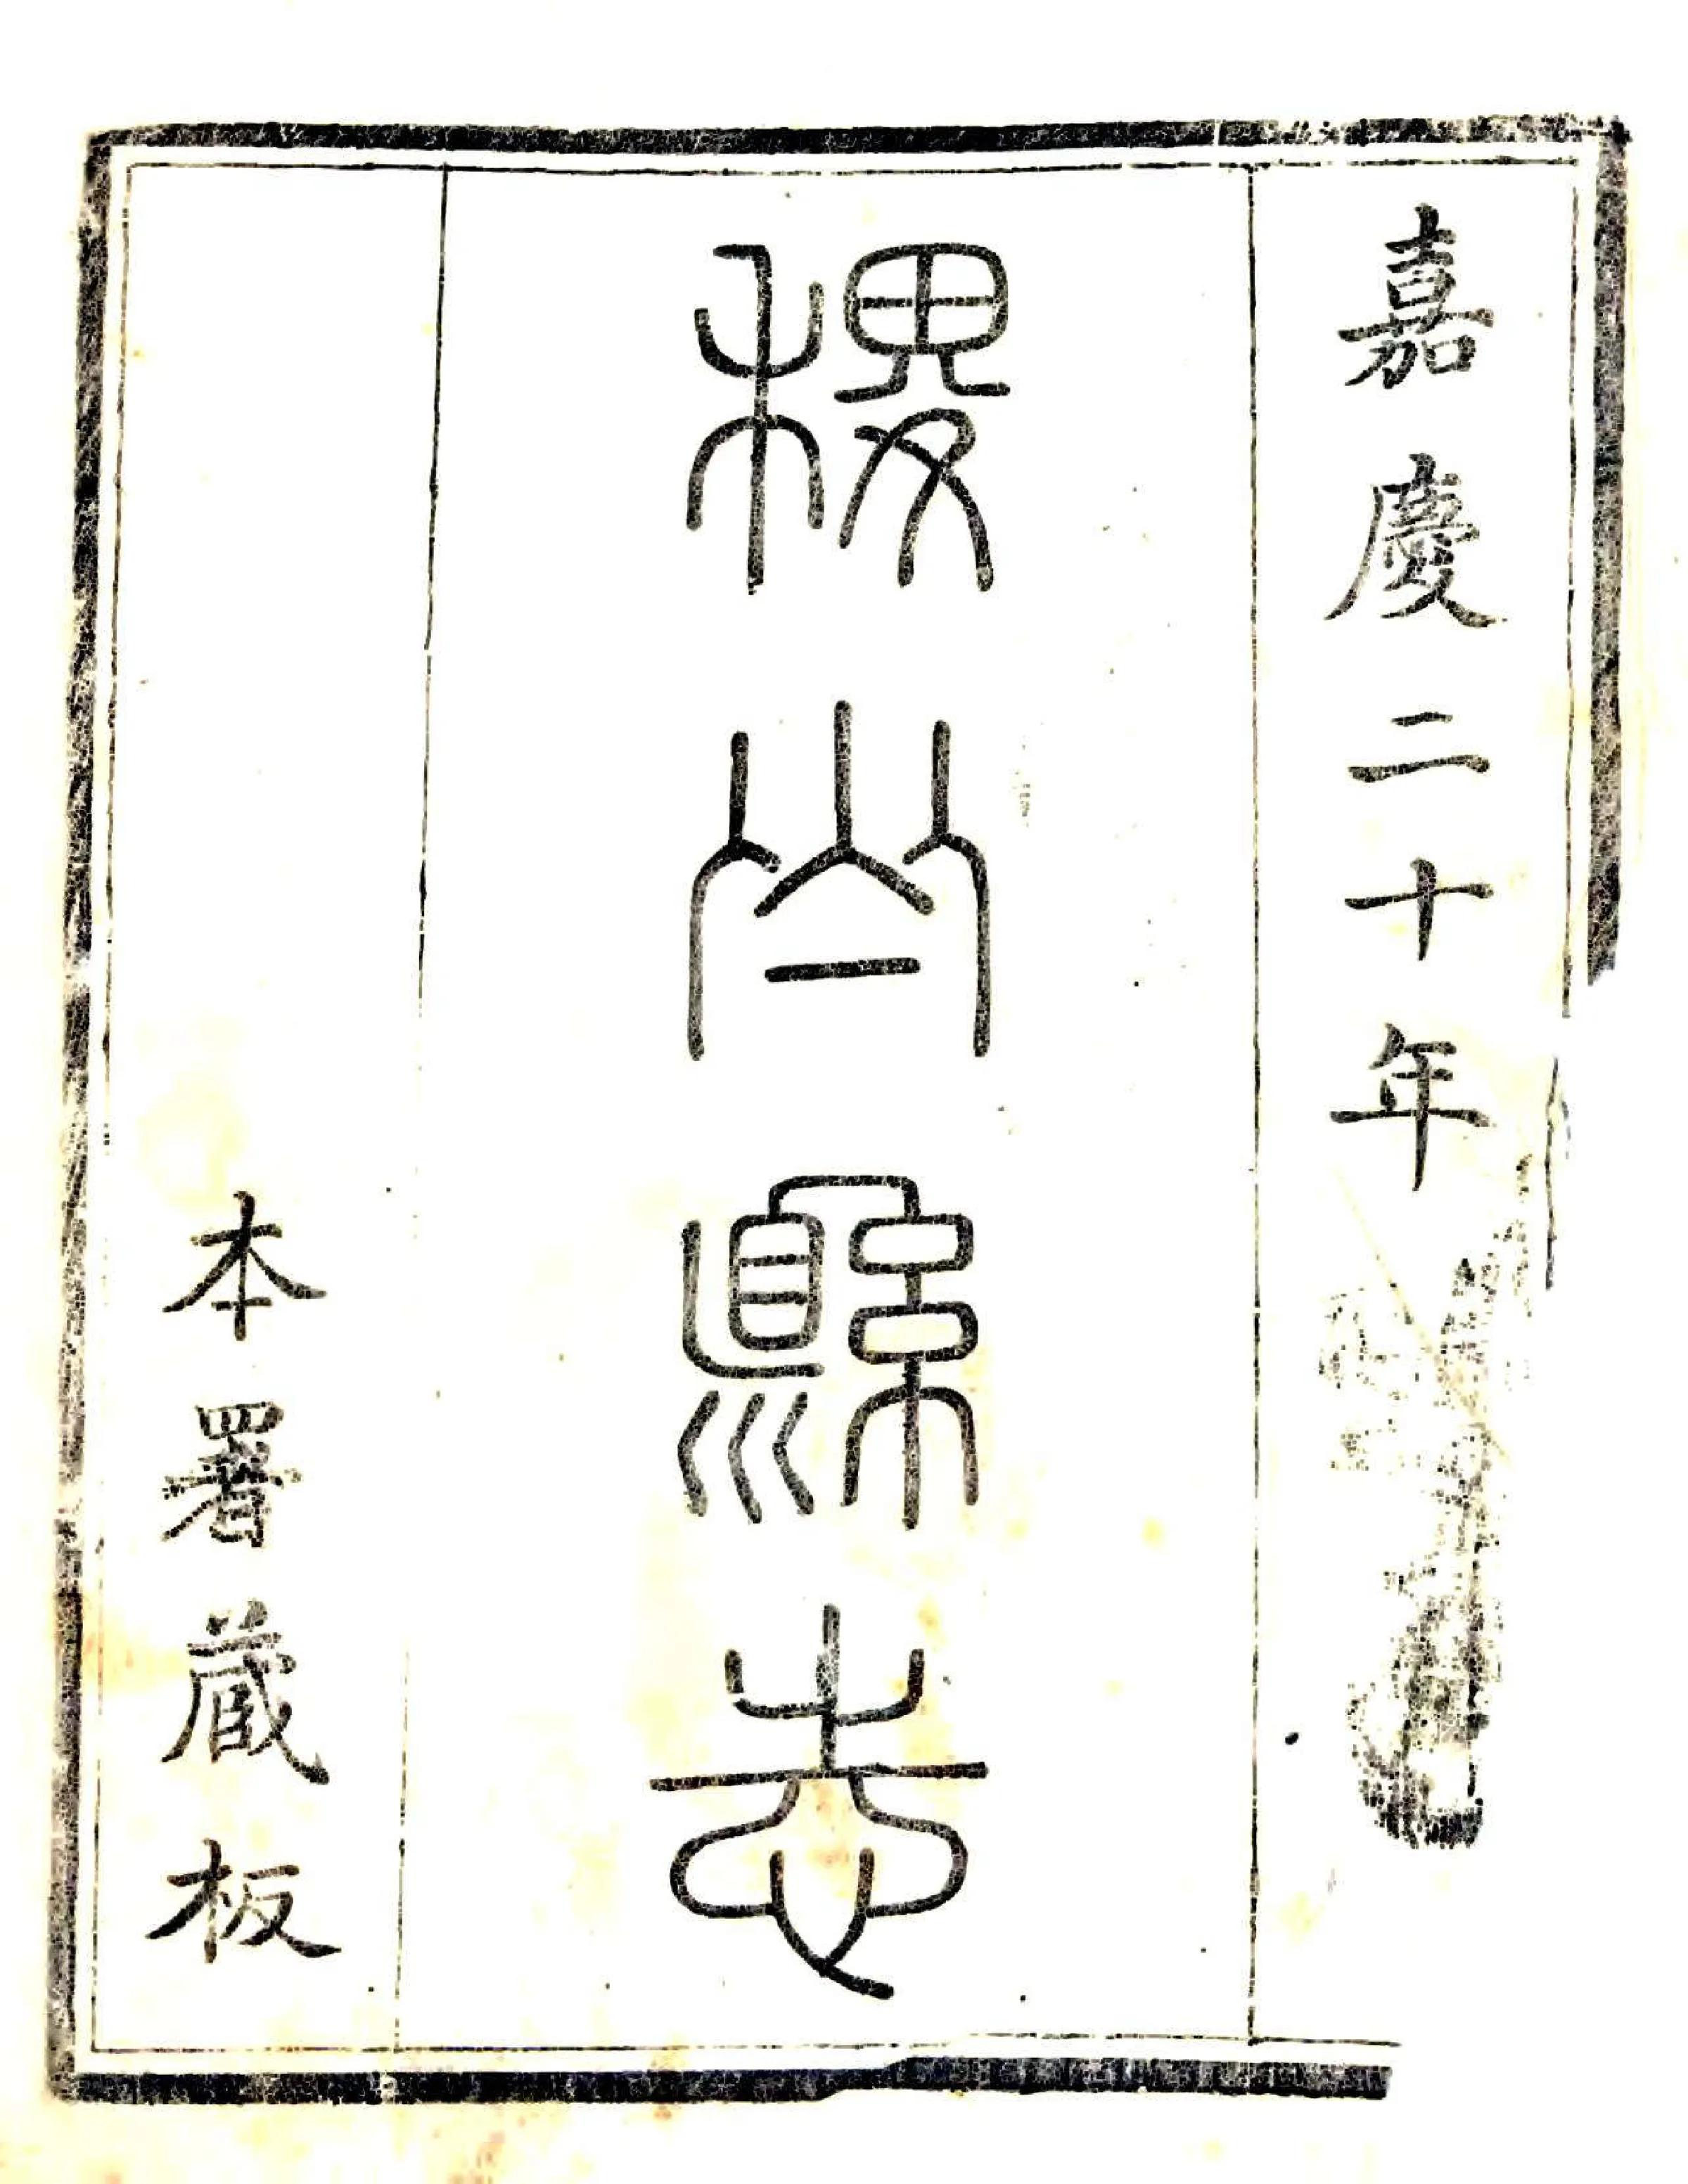 嘉慶二十年
稷山縣志
本署藏板